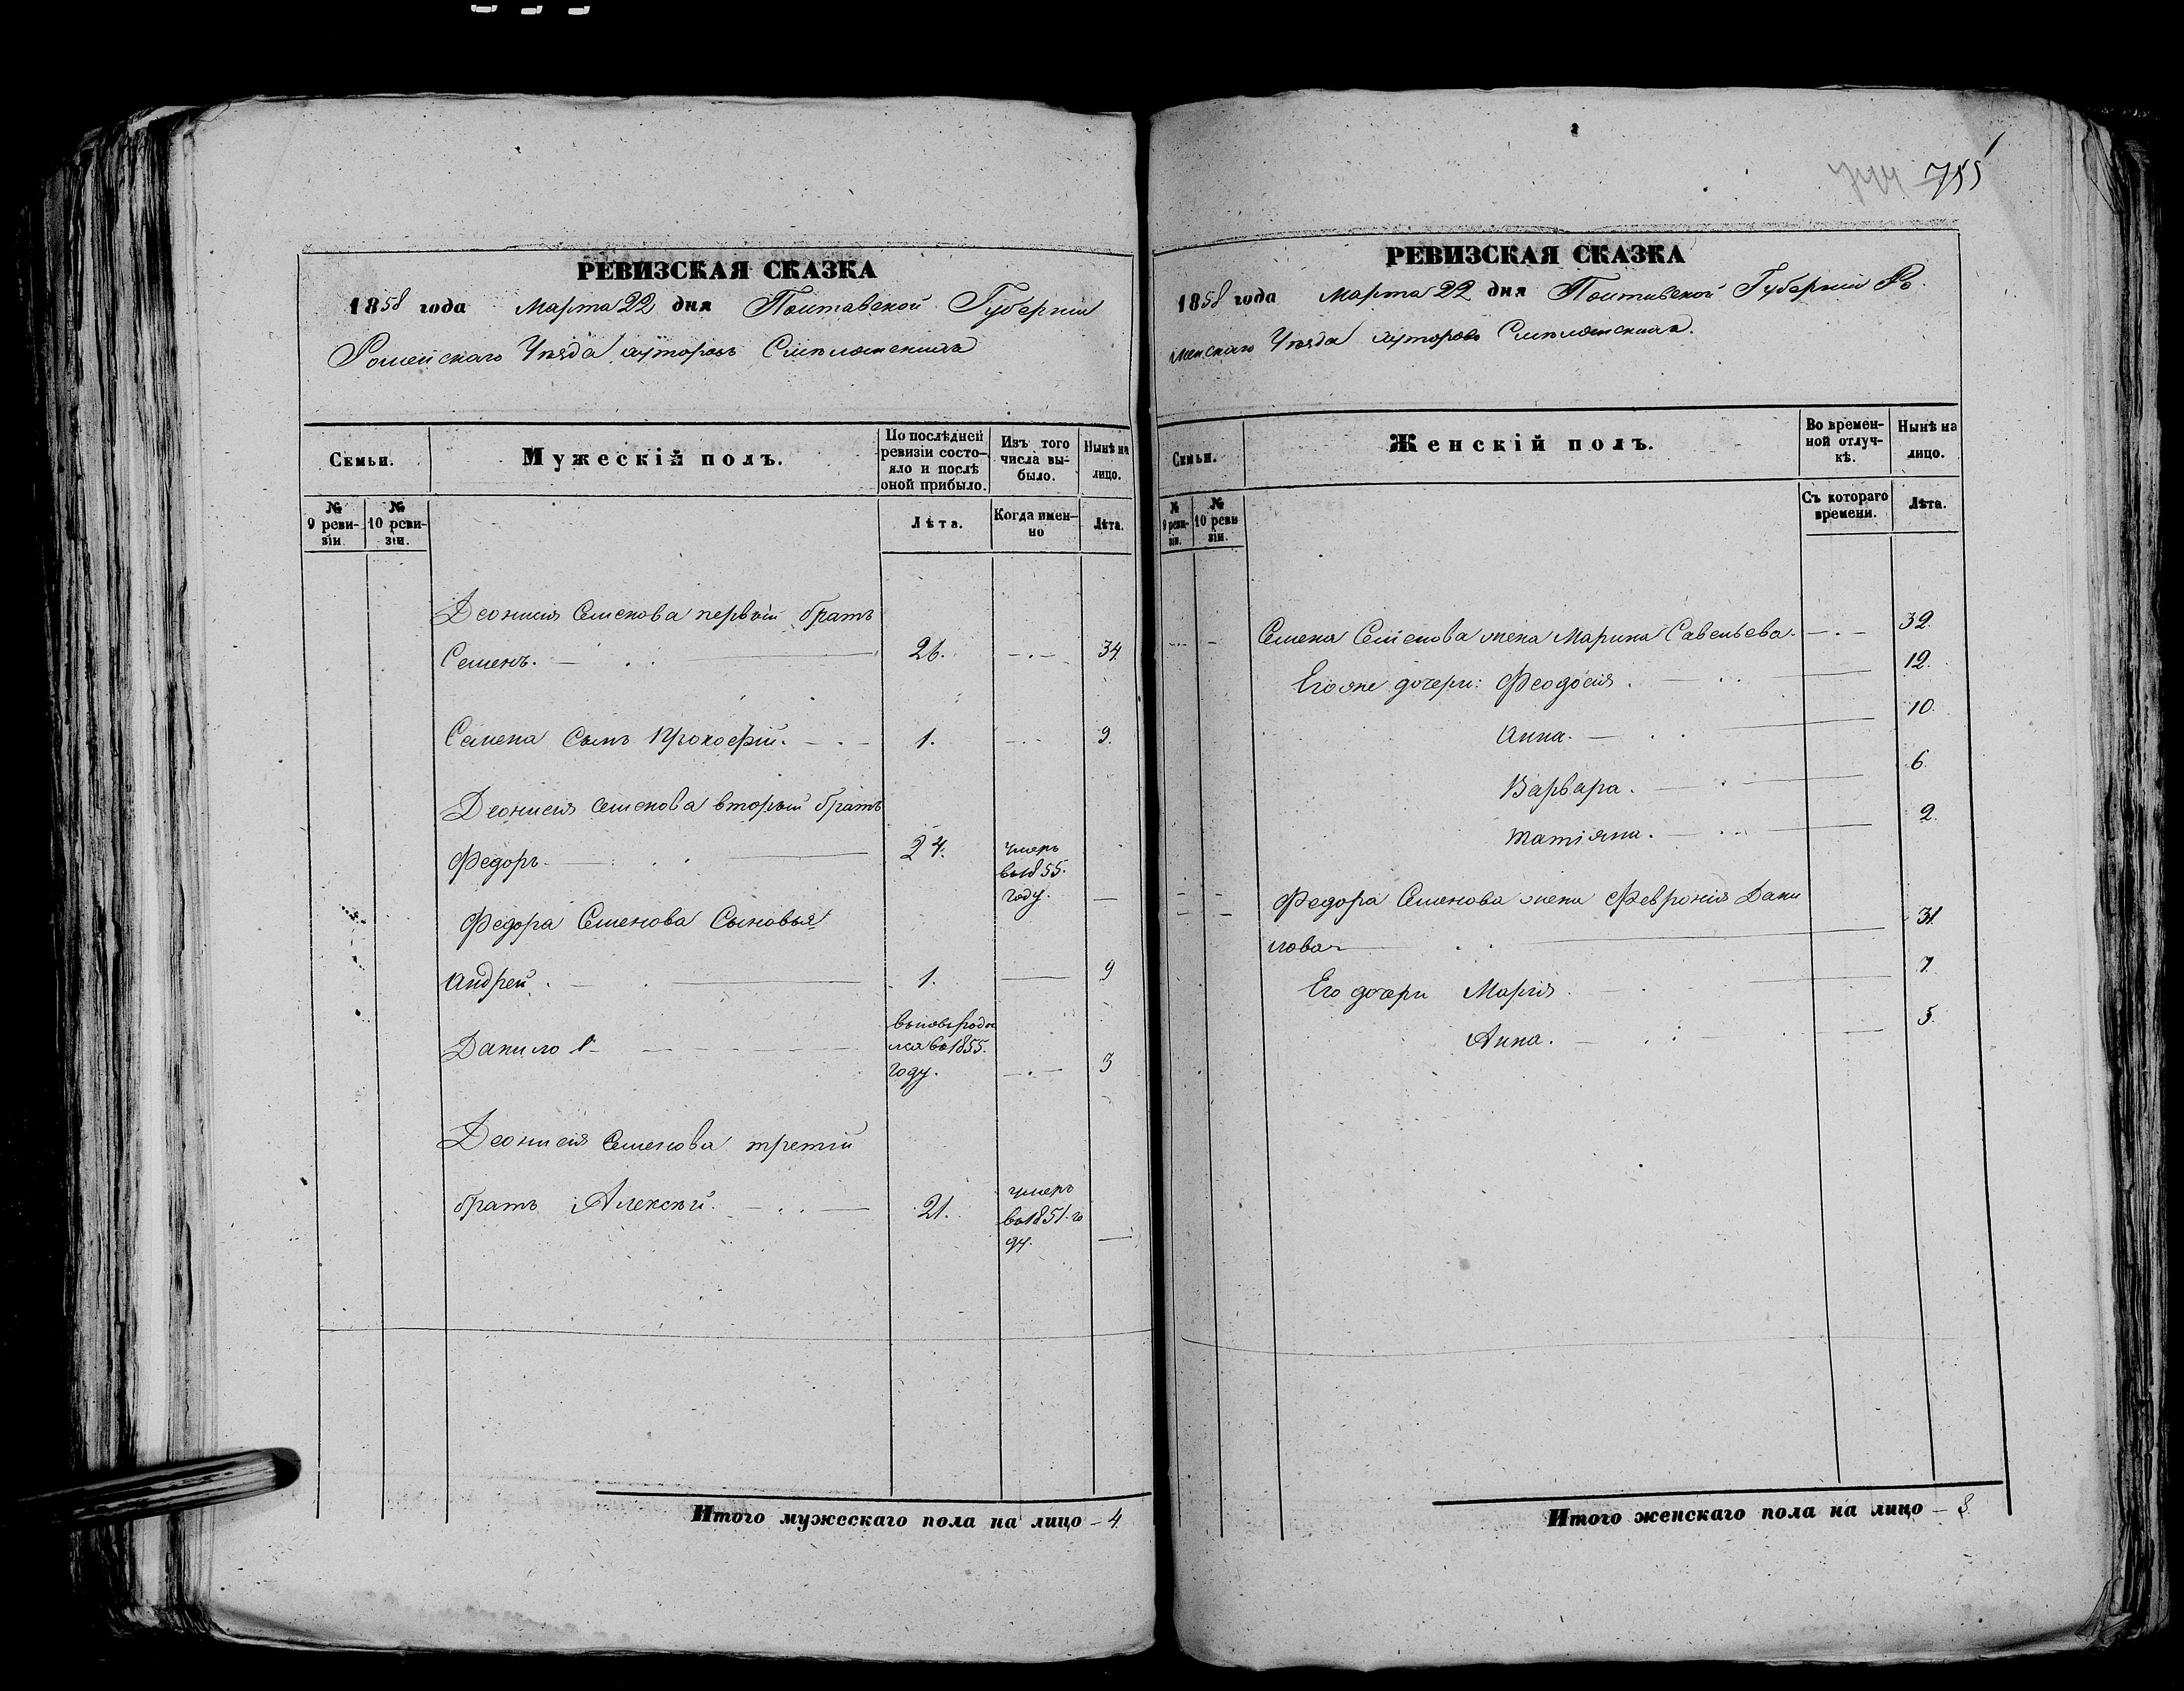 РЕВИЗСКАЯ СКАЗКА
1858 года Марта 22 дня Полтавской Губернiи
Роменскаго Уѣзда хуторовъ
Семьи.
Мужескій полъ.
По послѣдней ревизіи состояло и послѣ оной прибыло.
Изъ того числа выбыло.
Нынѣ на лицо.
№ 9 ревизіи.
№ 10 ревизіи.
Лѣта.
Когда именно
Лѣта.
Деонисія Семенова первый братъ
Семенъ. 26. 34.
Семена Сынъ Прокофій. 1. 9.
Деонисія Семенова вторый братъ
Федоръ 24. умеръ
въ 1855.
году.
Федора Семенова Сыновья
Андрей 1. 9
Данило вновь роди
лся въ 1855.
году. 3
Деонисія Семенова третій
братъ Алексѣй. 21. умеръ
въ 1851. го
ду.
Итого мужескаго пола на лицо 4.
755
РЕВИЗСКАЯ СКАЗКА
1858 года Марта 22 дня Полтавской Губерніи Ро
менскаго Уѣзда хуторовъ
Семьи.
Женскій полъ.
Во временной отлучкѣ.
Нынѣ на лицо.
№ 9 ревизіи.
№ 10 ревизіи.
Съ котораго времени.
Лѣта.
Семена Семенова жена Марина Савельева. 32.
Его же дочери: Феодосія. 12.
Анна. 10.
Варвара. 6.
Татіяна. 2.
Федора Семенова жена Февронія Дани
лова 31.
Его дочери Марія. 7.
Анна. 5.
Итого женскаго пола на лицо 8.